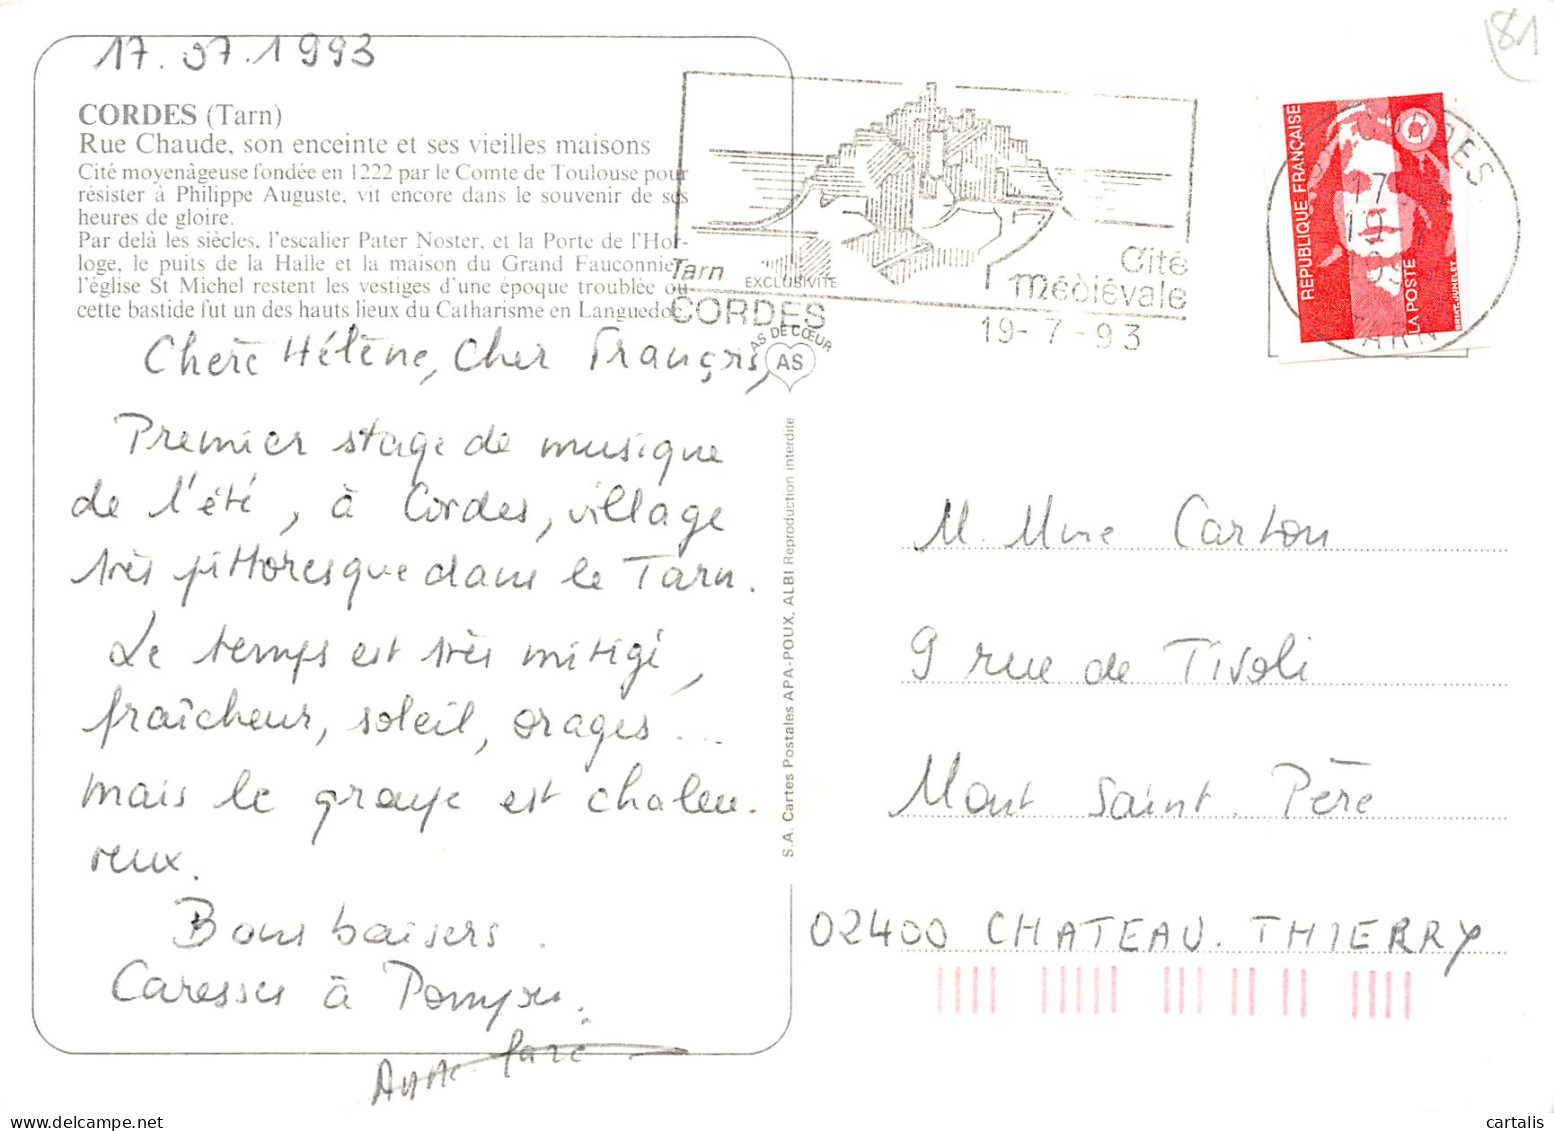 17.07.1993
81
CORDES (Tarn)
Rue Chaude, son enceinte et ses vieilles maisons
Cité moyenâgeuse fondée en 1222 par le Comte de Toulouse pour
résister à Philippe Auguste, vit encore dans le souvenir de ses
heures de gloire.
Par delà les siècles, l'escalier Pater Noster, et la Porte de l'Hor-
loge, le puits de la Halle et la maison du Grand Fauconnier,
l'église St Michel restent les vestiges d'une époque troublée où
cette bastide fut un des hauts lieux du Catharisme en Languedoc.
Tarn
CORDES
Cité
médiévale
19-7-93
EXCLUSIVITE
AS DE CŒUR
AS
REPUBLIQUE FRANÇAISE
LA POSTE
BRIAT-JUMELET
CORDES
TARN
Chère Hélène, Cher François,
Premier stage de musique
de l'été, à Cordes, village
très pittoresque dans le Tarn.
Le temps est très mitigé,
fraîcheur, soleil, orages...
mais le groupe est chaleu-
reux.
Bons baisers.
Caresses à
Anne
S.A. Cartes Postales APA-POUX, ALBI Reproduction interdite
M. Mme Carton
9 rue de Tivoli
Mont Saint. Père
02400 CHATEAU. THIERRY
cartalis